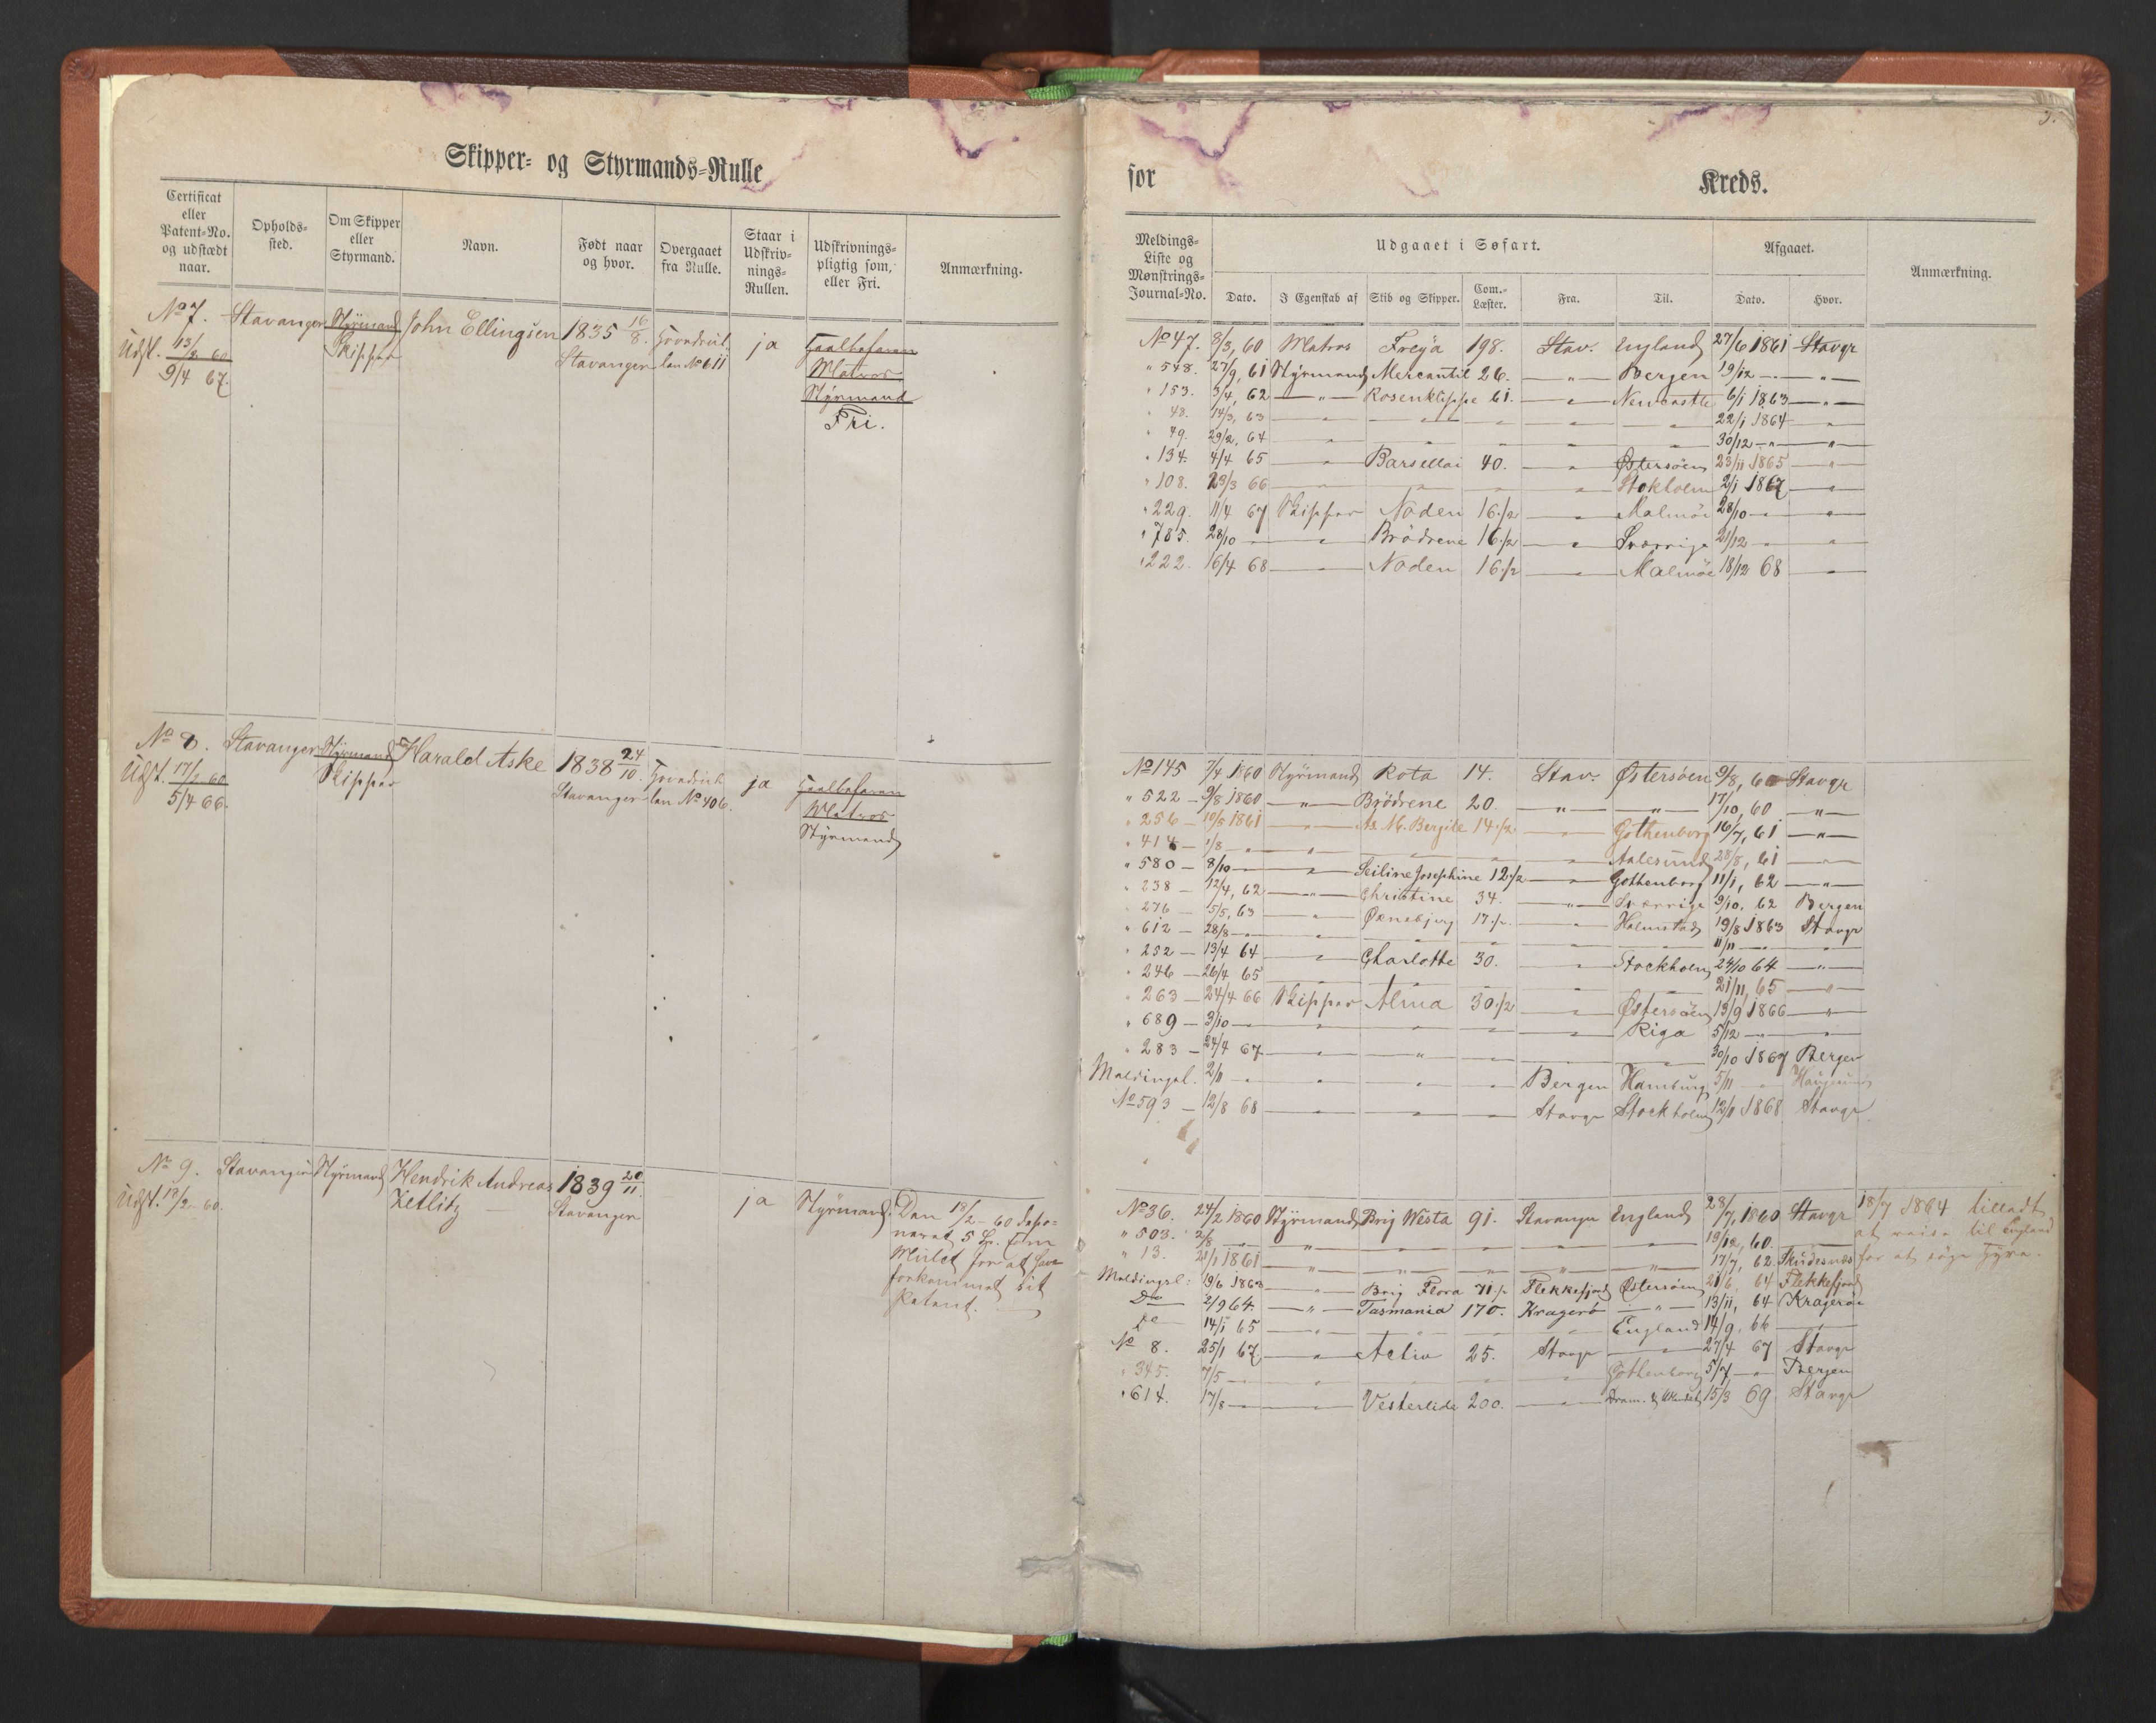 Skipper- og Styrmands-Rulle
for Kreds.
3.
Certificat eller Patent-No. og udstædt naar.
Opholds-sted.
Om Skipper eller Styrmand.
Navn.
Født naar og hvor.
Overgaaet fra Rulle.
Staar i Udskriv-nings-Rullen.
Udskrivnings-pligtig som, eller Fri.
Anmærkning.
Meldings-Liste og Mønstrings-Journal-No.
Udgaaet i Søfart.
Dato.
I Egenskab af
Skib og Skipper.
Com.-Læster.
Fra.
Til.
Afgaaet.
Dato.
Hvor.
Anmærkning.
No 7. Stavanger Styrmand John Ellingsen 1835 16/8. Hovedrul ja
Udst. 13/2 60 Skipper Stavanger len No 611
9/4 67. Matros
Styrmand
Fri.
No 47. 8/3, 60 Matros Freya 198. Stav. England 27/6 1861 Stavgr
" 548. 27/9, 61 Styrmand Mercantil 26. — " — Bergen 19/12 — " — — " —
" 153. 3/4, 62 — " — Rosenklippe 61. — " — Newcastle 6/1 1863 — " —
" 48. 14/3, 63 — " — — " — " — " — — " — 22/1 1864 — " —
" 79. 29/2, 64 — " — — " — " — " — — " — 30/12 — " — — " —
" 134. 4/4 65 — " — Barselloi 40. — " — Østersøen 23/11 1865 — " —
" 108. 23/3 66 — " — — " — — " — Stokholm 2/1 1867 — " —
" 229. 11/4 67 Skipper Noden 16 1/2 — " — Malmøe 28/10 — " — — " —
" 785. 28/10 — " — — " — Brödrene 16 1/2 — " — Sverrige 21/12 — " — — " —
" 222. 16/4 68 — " — Noden 16 1/2 — " — Malmøe 18/12 68 — " —
No 8. Stavanger Styrmand Harald Aske 1838 24/10. Hovedrul ja
Udst. 17/2 60 Skipper Stavanger len No 406.
5/4 66. Matros
Styrmand
No 145 7/4 1860 Styrmand Rota 14. Stav. Østersøen 9/8, 60 Stavgr
" 522 — 9/8 1860 — " — Brödrene 20. — " — — " — 17/10, 60 — " —
" 256 — 10/5 1861 — " — As. M. Bergite 14 1/2 — " — Gothenborg 16/7, 61 — " —
" 414 — 1/8 — " — — " — — " — — " — Aalesund 28/8, 61 — " —
" 580 — 8/10 — " — — " — Seiline Josephine 12 1/2 — " — Gothenborg 11/1, 62 — " —
" 238 — 12/4, 62 — " — Christine 34. — " — Sverrige 9/10, 62 Bergen
" 276 — 5/5, 63 — " — 17 1/2 — " — Halmstad 19/8 1863 Stavgr
" 612 — 28/8 — " — — " — — " — — " — — " — 11/11 — " — — " —
" 252 — 13/4 64 — " — Charlotte 30. — " — Stockholm 24/10 64 — " —
" 246 — 26/4 65 — " — — " — — " — — " — 21/11, 65 — " —
" 263 — 24/4 66 Skipper Alma 30 1/2 — " — Østersøen 13/9 1866 — " —
" 689 — 3/10 — " — — " — — " — — " — Riga 5/12 — " — — " —
" 283 — 24/4 67 — " — — " — — " — — " — 30/10 1867 Bergen
Meldingsl. 2/11 — " — — " — — " — Bergen Hamburg 5/11 — " —
No 593 — 12/8 68 — " — — " — — " — Stavgr Stockholm 12/11 1868 Stavgr
No 9. Stavanger Styrmand Hendrik Andreas 1839 20/11. ja Styrmand. Den 18/2 - 60 depo-
Udst. 18/2 - 60. Zetlitz — Stavanger neret 5 Sp. som
Mulct for at have
forkommet sit
Patent. —
No 36. 24/2 1860 Styrmand Brig Westa 91. Stavanger England 28/7, 1860 Stavgr 18/7 1864 tilladt
" 503. 2/8 — " — — " — — " — — " — — " — 19/12, 60. — " — at reise til England
" 13. 21/1 1861 — " — — " — — " — — " — — " — 17/7, 62. Skudesnæs for at søge Hyre.
Meldingsl: 19/6 1863 — " — Brig Flora 71 1/2 Flekkefjord Østersøen 21/6. 64 Flekkefjord
Do — 2/9 64. — " — Tasmania 170. Kragerö — " — 13/11, 64 Kragerøe
Do — 14/1 65 — " — — " — — " — — " — England 14/9. 66 — " —
No 8. 25/1 67. — " — Activ 25. Stavgr — " — 27/4 67 Stavgr
" 345. 7/5 — " — — " — — " — — " — Gothenborg 5/7 — " — Bergen
" 614. 17/8 — " — — " — Vesterlide 200. — " — Dram. & 15/3 69 Stavgr